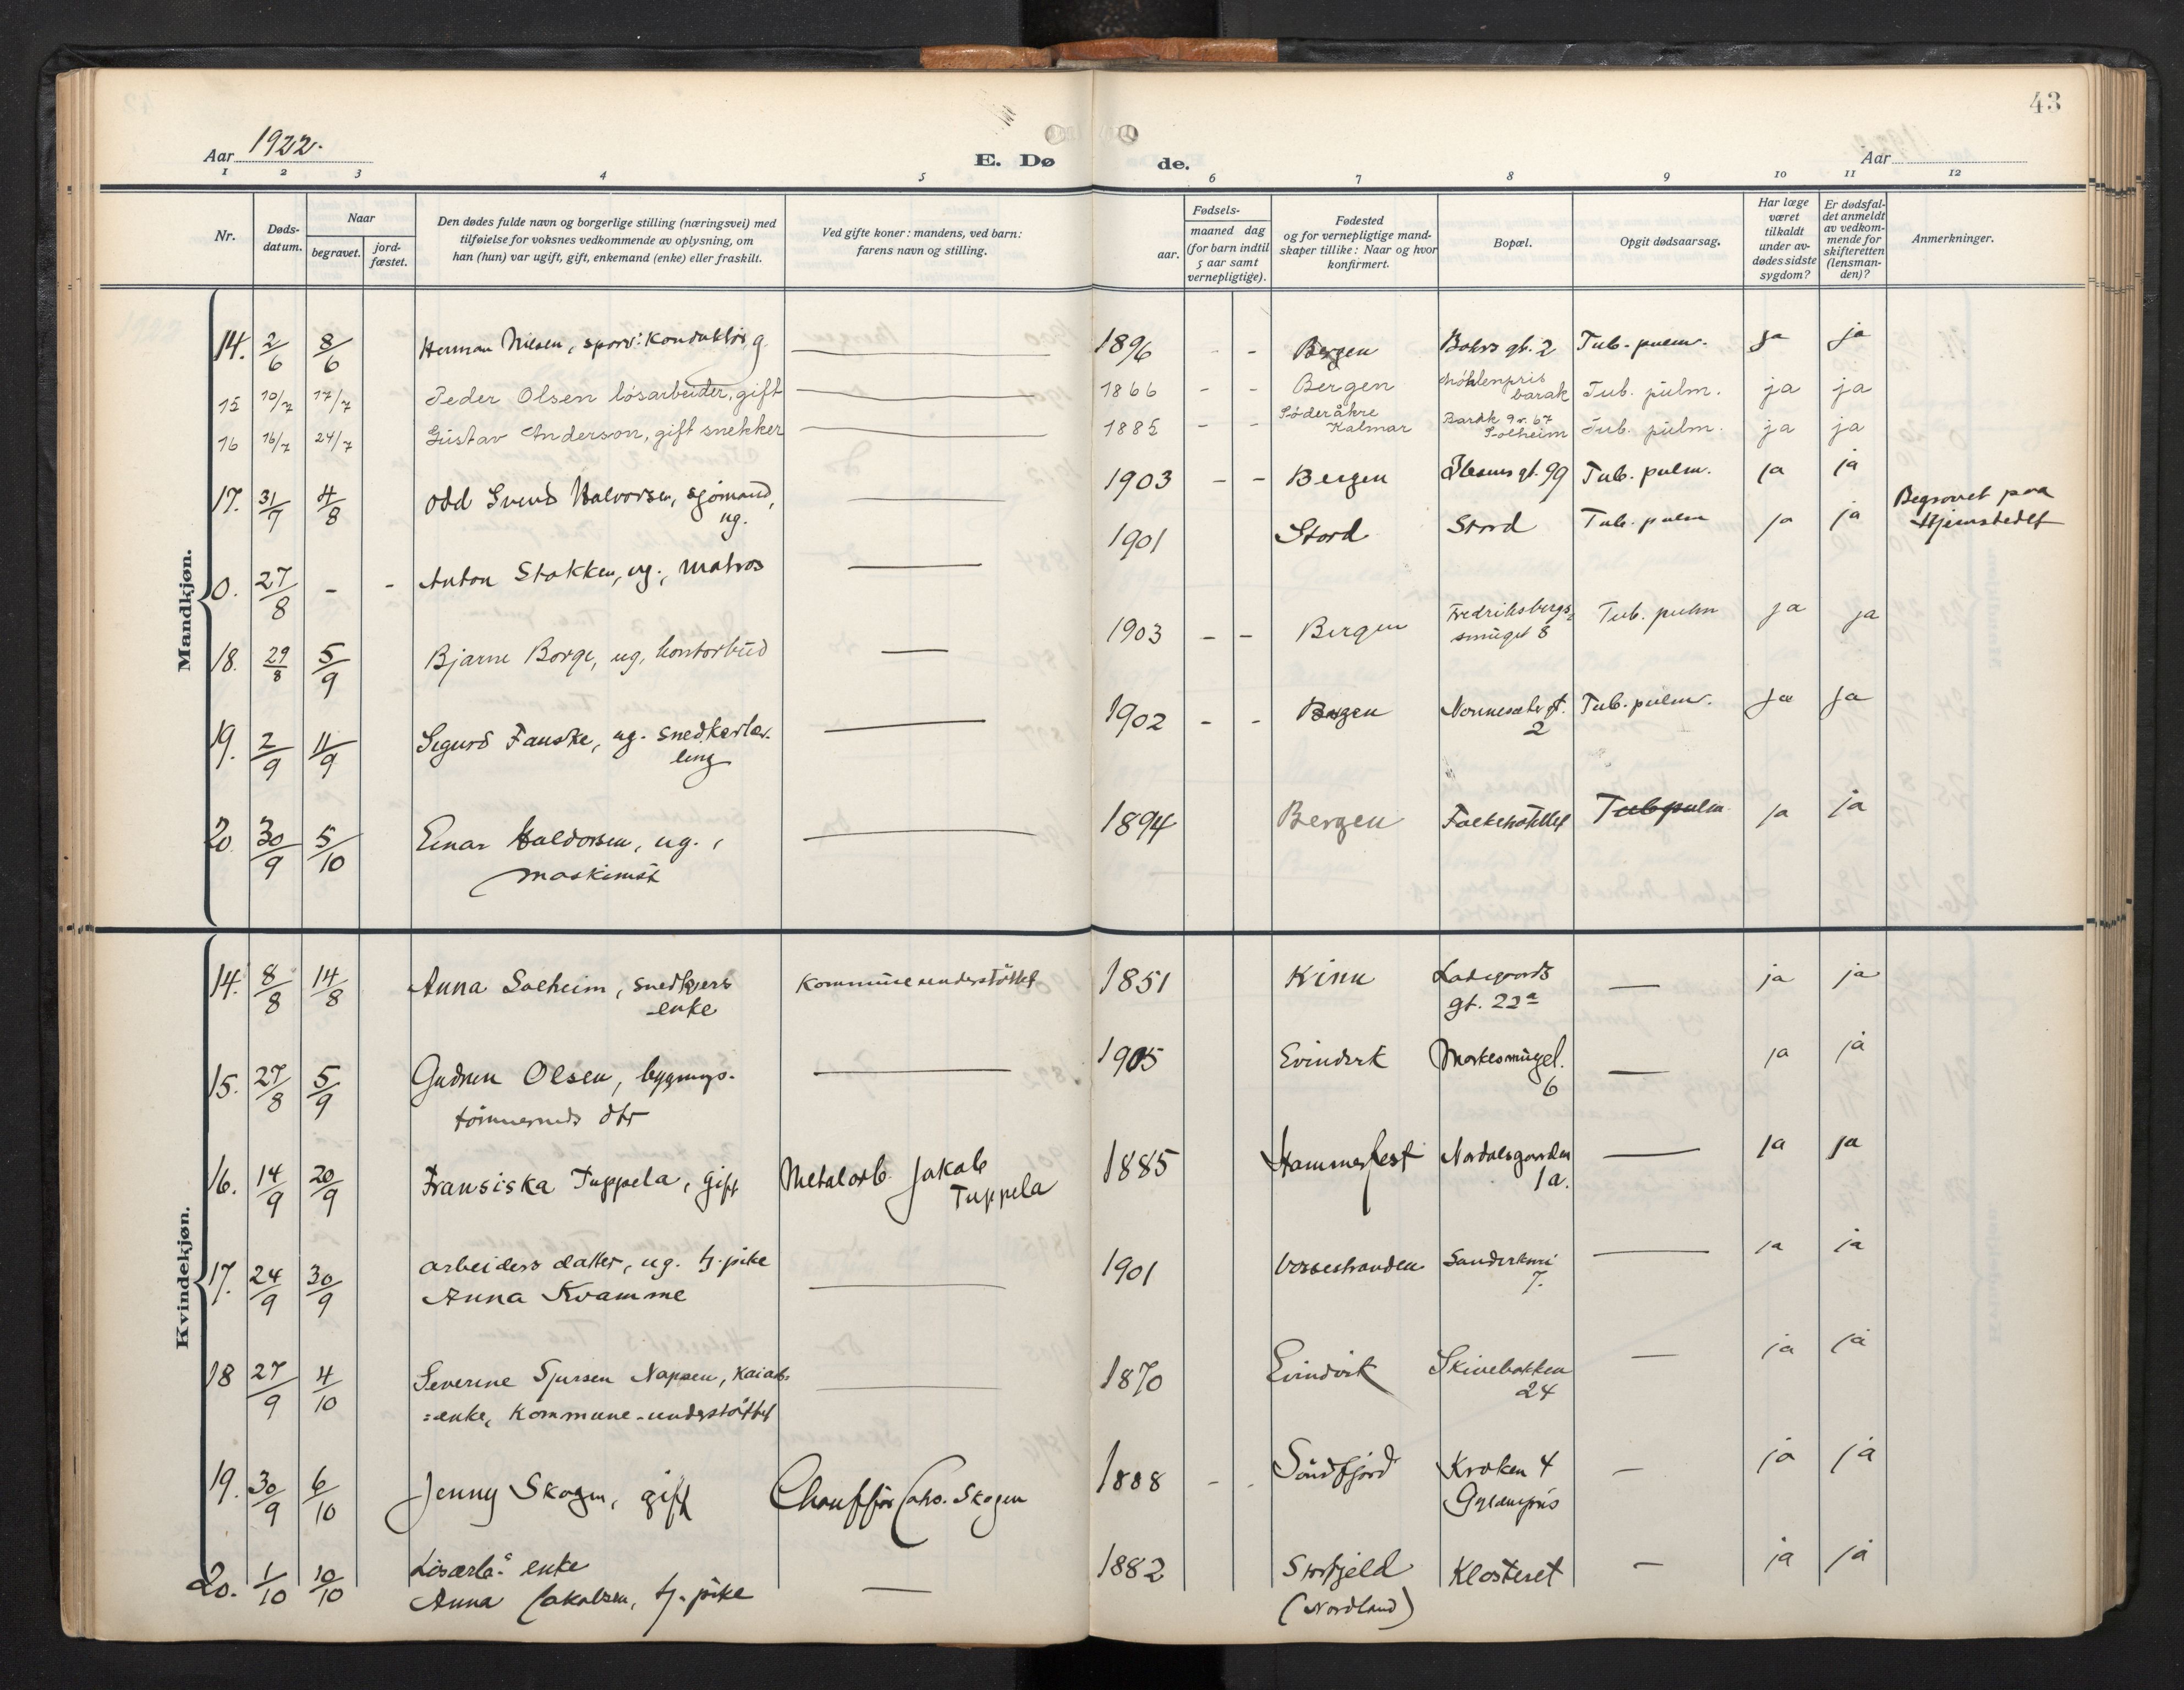 43
Aar 1922.
E. Dø de.
Aar
1 2 3 4 5 6 7 8 9 10 11 12
Nr.
Døds-
datum.
Naar
begravet.
jord-
fæstet.
Den dødes fulde navn og borgerlige stilling (næringsvei) med
tilføielse for voksnes vedkommende av oplysning, om
han (hun) var ugift, gift, enkemand (enke) eller fraskilt.
Ved gifte koner: mandens, ved barn:
farens navn og stilling.
Fødsels-
aar.
maaned dag
(for barn indtil
5 aar samt
vernepligtige).
Fødested
og for vernepligtige mand-
skaper tillike: Naar og hvor
konfirmert.
Bopæl.
Opgit dødsaarsag.
Har læge
været
tilkaldt
under av-
dødes sidste
sygdom?
Er dødsfal-
det anmeldt
av vedkom-
mende for
skifteretten
(lensman-
den)?
Anmerkninger.
Mandkjøn.
14. 2/6 8/6 Herman Nilsen, sporv: konduktør g. 1896 - - Bergen Bohrs gt. 2 Tub. pulm. ja ja
15 10/7 17/7 Peder Olsen løsarbeider, gift 1866 - - Bergen Møhlenpris
barak Tub. pulm. ja ja
16 16/7 24/7 Gustav Anderson, gift snekker 1885 - - Söderåkre
Kalmar Barak 9 v. 67
Solheim Tub. pulm. ja ja
17. 31/7 4/8 Odd Svend Halvorsen, sjömand,
ug. 1903 - - Bergen Ibsens gt. 99 Tub. pulm. ja ja
0. 27/8 - - Anton Stokken, ug., matros 1901 Stord Stord Tub. pulm ja ja Begravet paa
Hjemstedet
18. 29/8 5/9 Bjarne Borge, ug, kontorbud 1903 - - Bergen Fredriksbergs-
smuget 8 Tub. pulm ja ja
19. 2/9 11/9 Sigurd Fauske, ug. snedkerlær-
ling 1902 - - Bergen Nonneseter gt.
2 Tub. pulm. ja ja
20 30/9 5/10 Einar Haldorsen, ug.,
maskinist 1894 Bergen Folkehotellet Tub pulm ja ja
Kvindekjøn.
14. 8/8 14/8 Anna Solheim, snedkers
-enke Kommuneunderstöttet 1851 Kinn Ladegaards
gt. 22a — ja ja
15. 27/8 5/9 Gudrun Olsen, bygnings-
tömmermds dtr 1905 Evindvik Markesmuget.
6 — ja ja
16. 14/9 20/9 Fransiska Tuppela, gift Metalarb. Jakob
Tuppela 1885 Hammerfest Nordalsgaarden
1a. — ja ja
17. 24/9 30/9 arbeiders datter, ug. tj. pike
Anna Kvamme 1901 Vossestranden Sanderksvei
7. — ja ja
18 27/9 4/10 Severine Sjursen Nappen, kaiarb:
=enke, Kommune-understöttet 1870 Eivindvik Skivebakken
24 — ja ja
19. 30/9 6/10 Jenny Skogen, gift Chaufför Johs. Skogen 1888 - - Söndfjord Kroken 4
Gyldenpris — ja ja
20. 1/10 10/10 Lösarb.s enke
Anna Jakobsen, tj. pike — 1882 Storfjeld
(Nordland) Klosteret — ja ja